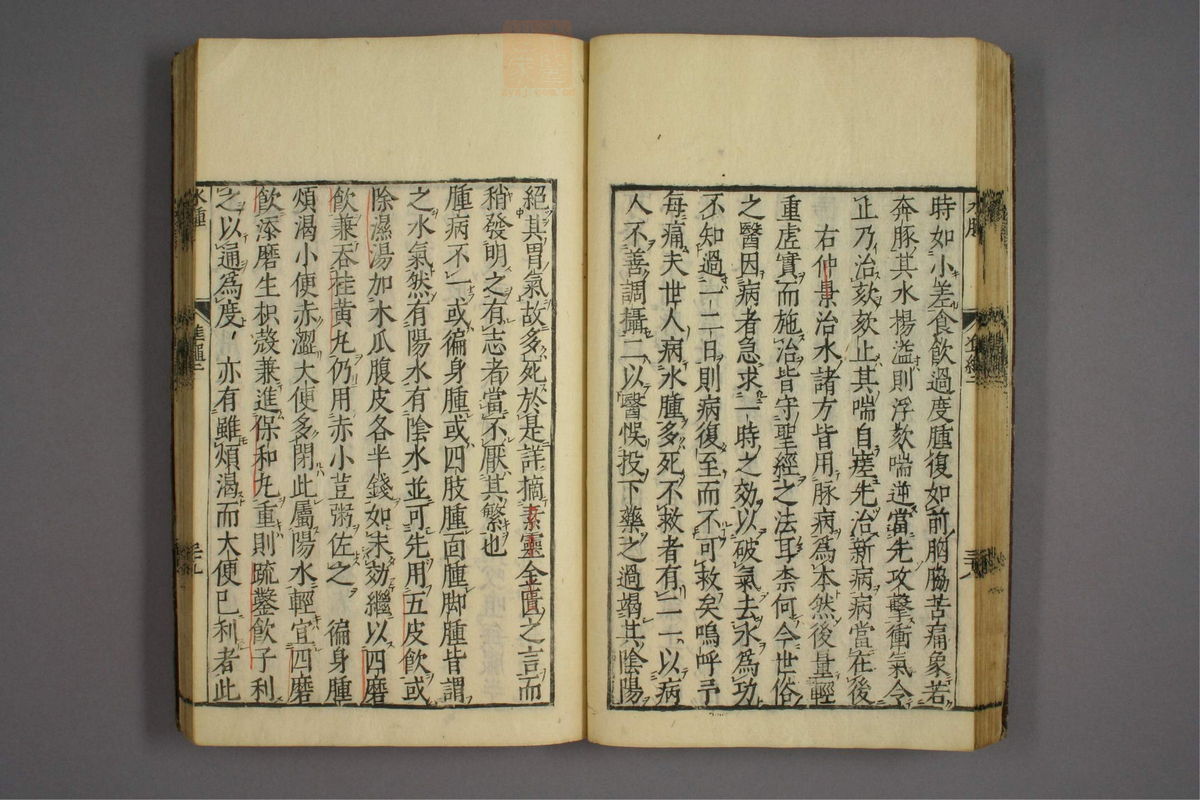 時如小差食飲過度腫復如前胸脇苦痛象若
奔豚其水揚溢則浮欬喘逆當先攻擊衝氣令
止乃治欬欬止其喘自瘥先治新病病當在後
右仲景治水諸方皆用脉病爲本然後量輕
重虛實而施治皆守聖經之法耳柰何今世俗
之醫因病者急求一時之効以破氣去水爲功
不知過一二日則病復至而不可救矣嗚呼予
每痛夫世人病水腫多死不救者有二一以病
人不善調攝二以醫悞投下藥之過竭其陰陽
絕其胃氣故多死於是詳摘素靈金匱之言而
稍發明之有志者當不厭其繁也
腫病不一或徧身腫或四肢腫面腫脚腫皆謂
之水氣然有陽水有陰水並可先用五皮飲或
除濕湯加木瓜腹皮各半錢如未効繼以四磨
飲兼吞桂黃丸仍用赤小荳粥佐之 徧身腫
煩渴小便赤澀大便多閉此屬陽水輕宜四磨
飲添磨生枳殼兼進保和丸重則疏鑿飲子利
之以通爲度 亦有雖煩渴而大便已利者此
水腫